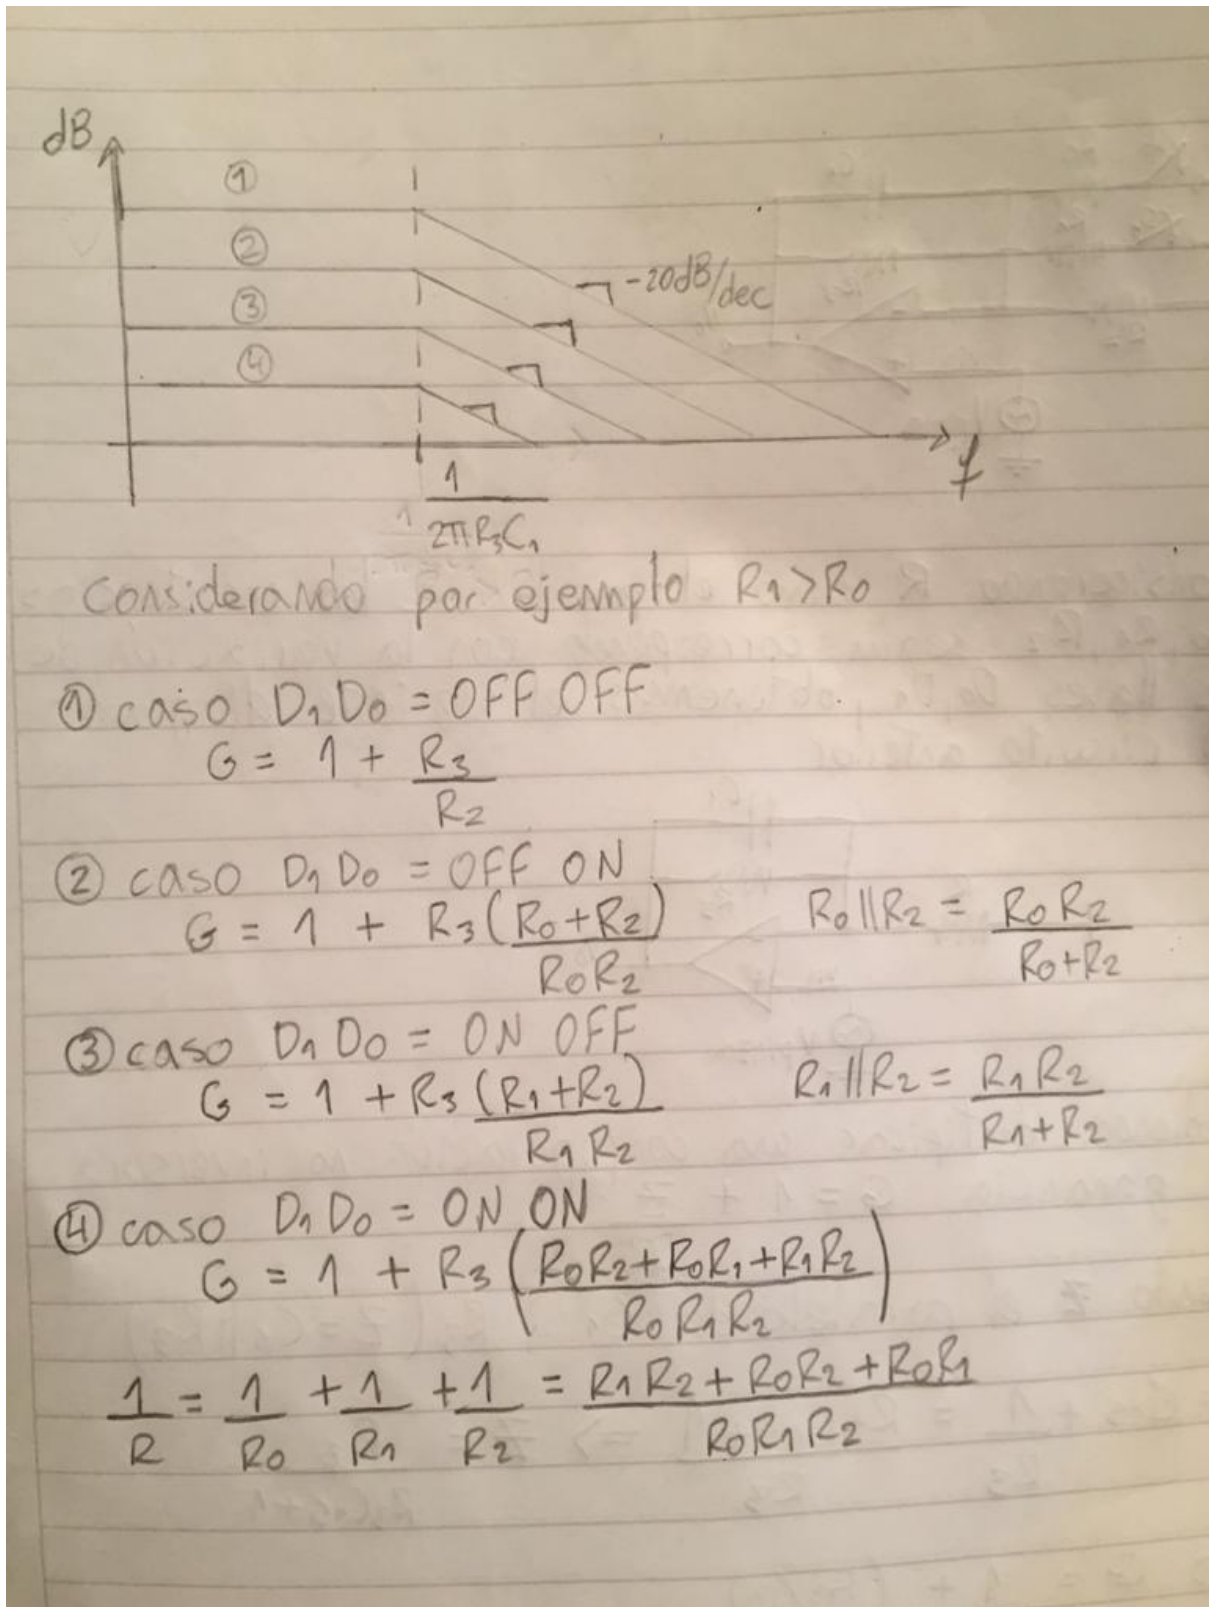 dB
①
②
③
④
-20dB/dec
f
1
2πR₃C₁
Considerando por ejemplo R₁>R₀
① caso D₁D₀ = OFF OFF
G = 1 + R₃/R₂
② caso D₁D₀ = OFF ON
G = 1 + R₃(R₀+R₂)/R₀R₂ R₀||R₂ = R₀R₂/R₀+R₂
③ caso D₁D₀ = ON OFF
G = 1 + R₃(R₁+R₂)/R₁R₂ R₁||R₂ = R₁R₂/R₁+R₂
④ caso D₁D₀ = ON ON
G = 1 + R₃(R₀R₂+R₀R₁+R₁R₂/R₀R₁R₂)
1/R = 1/R₀ + 1/R₁ + 1/R₂ = R₁R₂+R₀R₂+R₀R₁/R₀R₁R₂